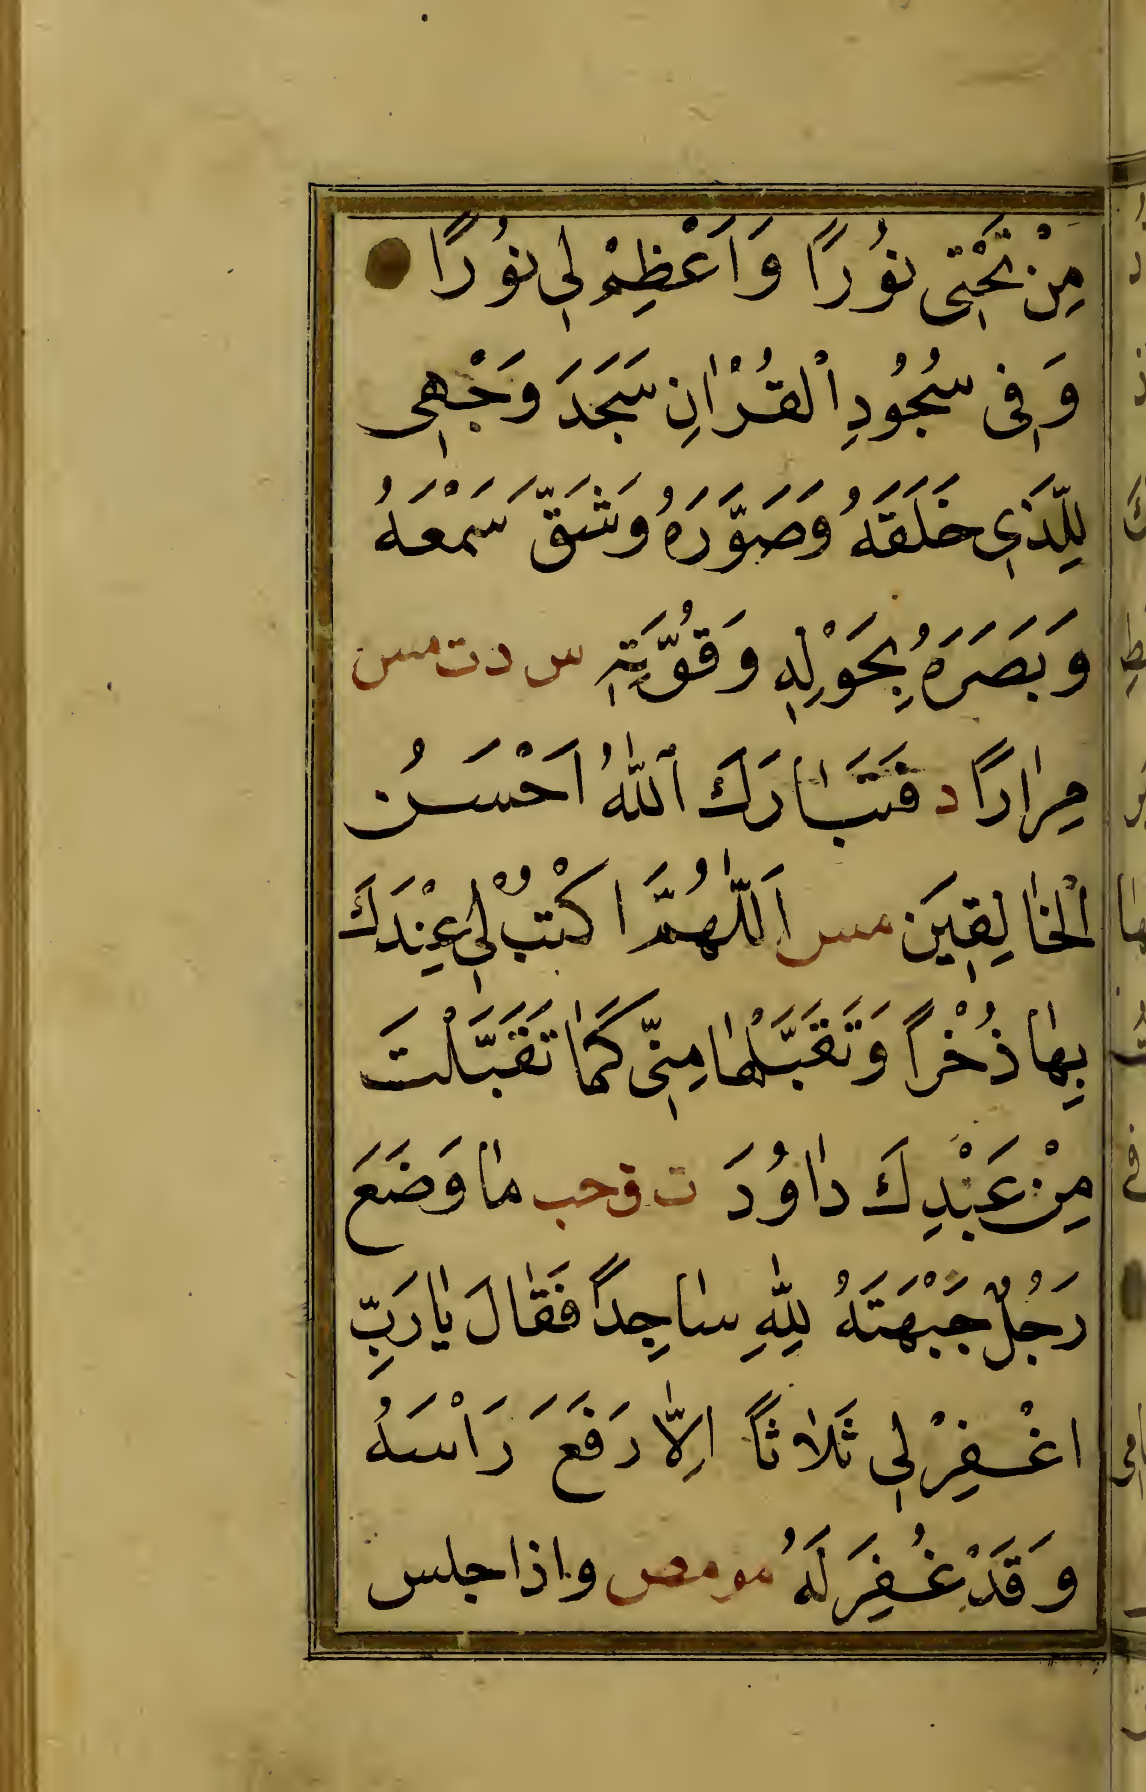 مِنْ تَحْتِى نُورًا وَاَعْظِمْ لِى نُورًا
وَفِى سُجُودِ الْقُرْاٰنِ سَجَدَ وَجْهِى
لِلَّذِى خَلَقَهُ وَصَوَّرَهُ وَشَقَّ سَمْعَهُ
وَبَصَرَهُ بِحَوْلِهِ وَقُوَّتِهِ س د ت مس
مِرٰارًا د فَتَبٰارَكَ اللّٰهُ اَحْسَنُ
الْخٰالِقِينَ مس اَللّٰهُمَّ اكْتُبْ لِى عِنْدَكَ
بِهٰا ذُخْرًا وَتَقَبَّلْهٰا مِنِّى كَمٰا تَقَبَّلْتَ
مِنْ عَبْدِكَ دٰاوُدَ ت ق حب مٰا وَضَعَ
رَجُلٌ جَبْهَتَهُ لِلّٰهِ سٰاجِدًا فَقٰالَ يٰا رَبِّ
اغْفِرْ لِى ثَلاٰثًا اِلاّٰ رَفَعَ رَاْسَهُ
وَقَدْ غُفِرَ لَهُ مو مص واذا جلس